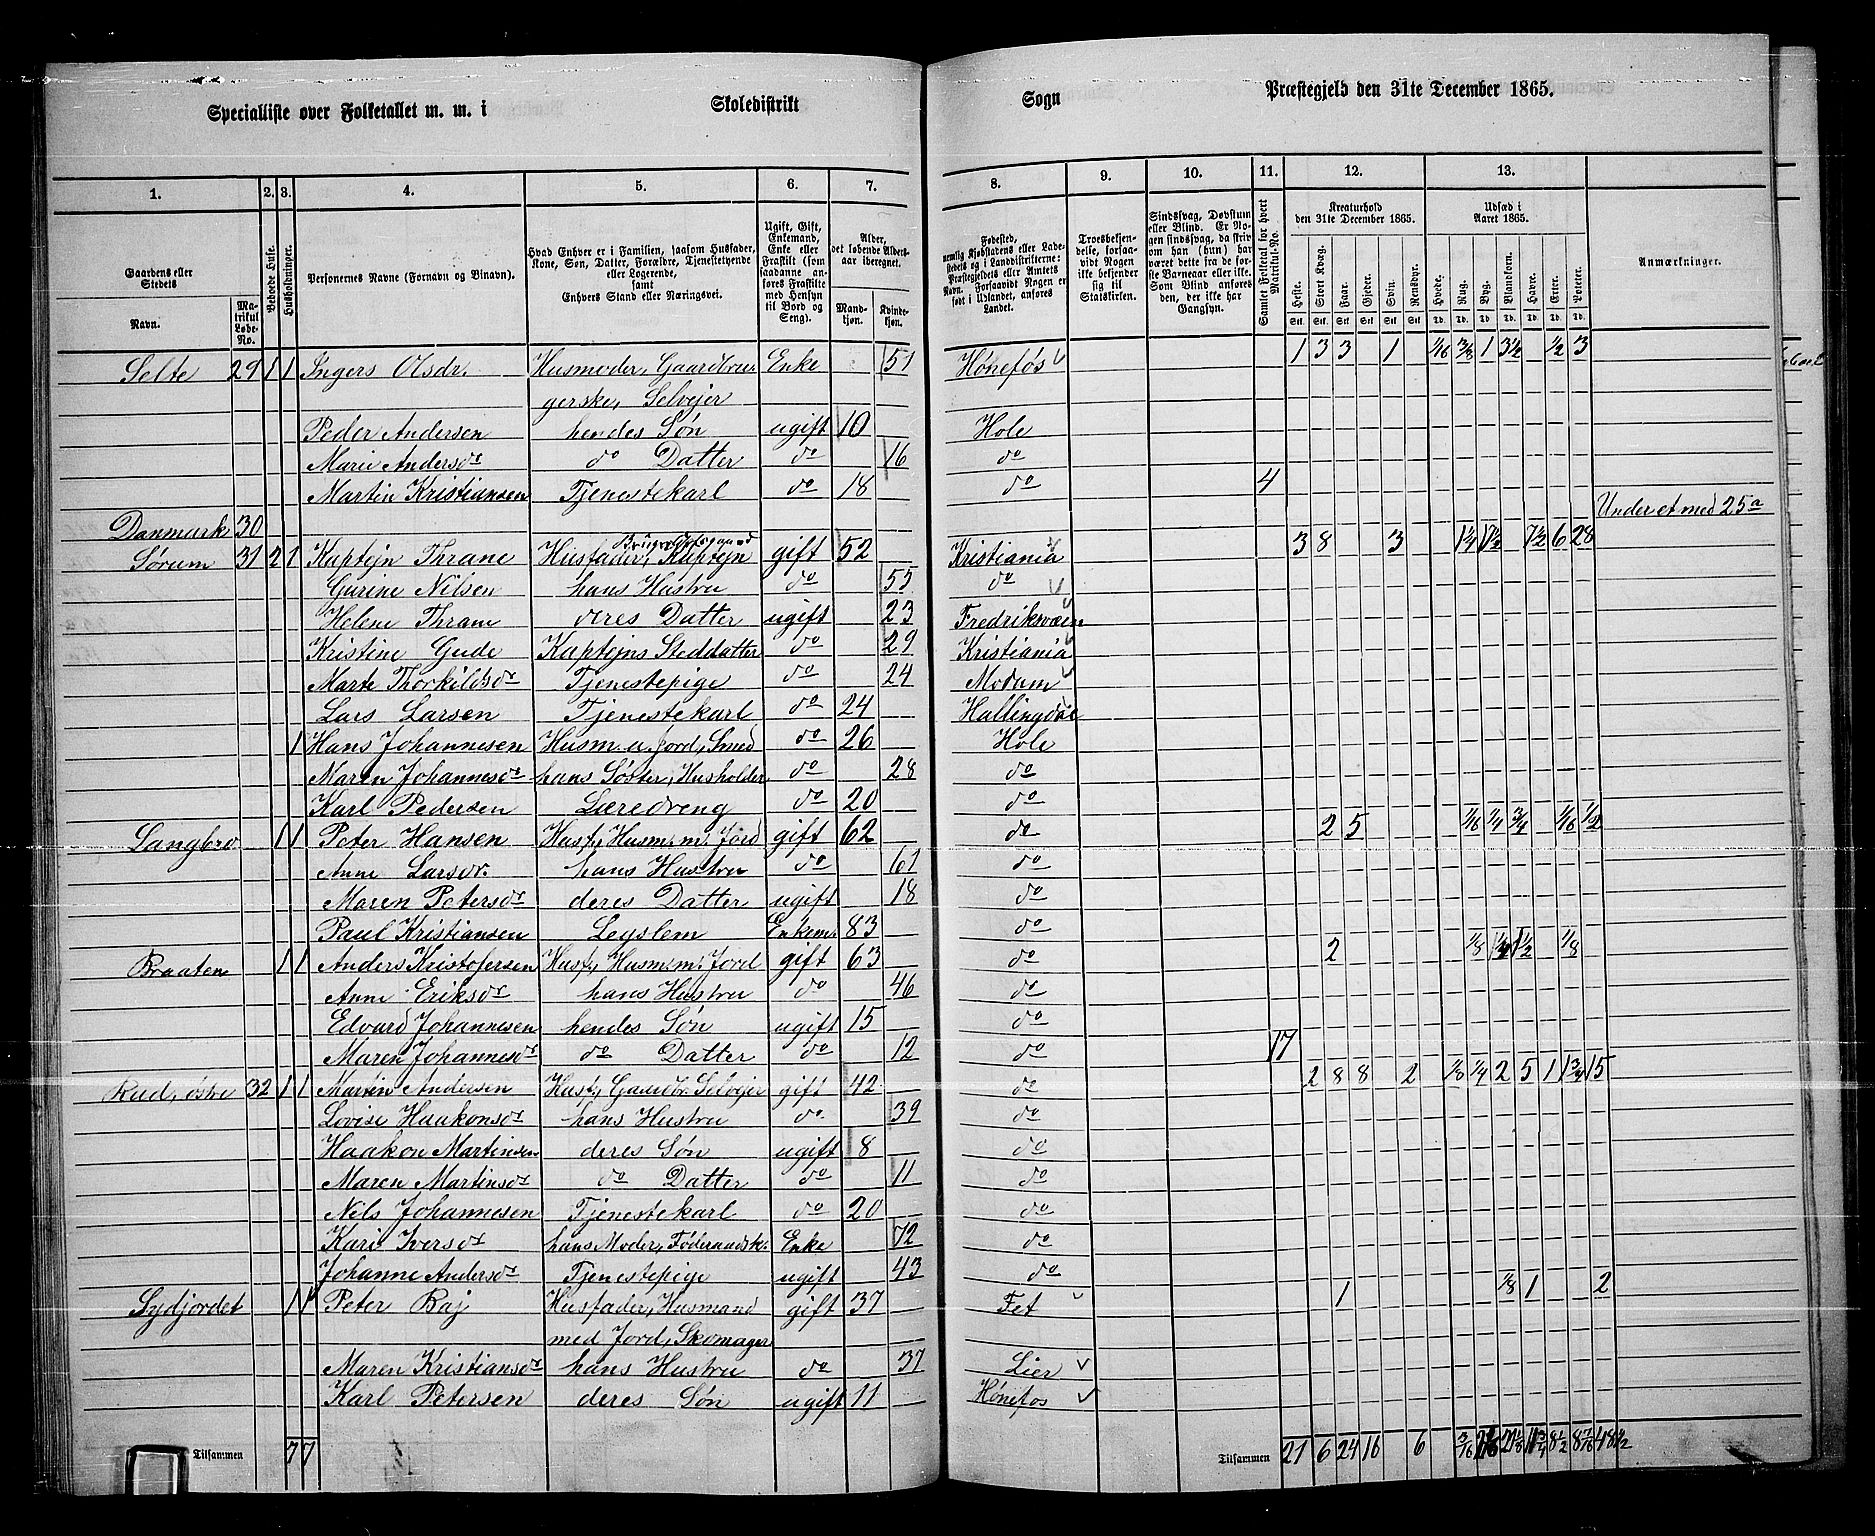 Specialliste over Folketallet m. m. i Skoledistrikt Sogn Præstegjeld den 31te December 1865.
1. 2. 3. 4. 5. 6. 7. 8. 9. 10. 11. 12. 13.
Gaardens eller Stedets Navn. Matrikul Løbe-No.
Beboede Huse.
Husholdninger.
Personernes Navne (Fornavn og Binavn).
Hvad Enhver er i Familien, saasom Husfader, Kone, Søn, Datter, Forældre, Tjenestetyende eller Logerende, samt Enhvers Stand eller Næringsvei.
Ugift, Gift, Enkemand, Enke eller Fraskilt (som saadanne anføres Fraskilte med Hensyn til Bord og Seng).
Alder, det løbende Aldersaar iberegnet. Mandkjøn. Kvindekjøn.
Fødested, nemlig Kjøbstadens eller Ladestedets og i Landdistrikterne: Præstegjeldets eller Amtets Navn. Forsaavidt Nogen er født i Udlandet, anføres Landet.
Troesbekjendelse, forsaavidt Nogen ikke bekjender sig til Statskirken.
Sindssvag, Døvstum eller Blind. Er Nogen sindssvag, da skriv om han (hun) har været dette fra de første Barneaar eller ikke. Som Blind anføres den, der ikke har Gangsyn.
Samlet Folketal for hvert Matrikul-No.
Kreaturhold den 31te December 1865. Heste. Stort Kvæg. Faar. Gjeder. Svin. Rensdyr.
Udsæd i Aaret 1865. Hvede. Rug. Byg. Blandkorn. Havre. Erter. Poteter.
Anmærkninger.
Selte 29 1 1 Ingers Olsdr. Husmoder, Gaardbru- Enke 51 Hønefos 1 3 3 1 1/16 3/8 1 3½ ½ 3
gerske, Selvejer
Peder Andersen hendes Søn ugift 10 Hole
Marie Andersdr do Datter do 16 do
Martin Kristiansen Tjenestekarl do 18 do 4
Danmark 30 Under et med 25a
Sørum 31 2 1 Kaptejn Thrane Husfader, Kaptejn gift 52 Kristiania 3 8 3 1¼ 1½ 7½ 6 28
Gurine Nilsen hans Hustru do 55 do
Helene Thrane deres Datter ugift 23 Fredriksværn
Kristine Gude Kaptejns Steddatter do 29 Kristiania
Marte Thorkildsdr Tjenestepige do 24 Modum
Lars Larsen Tjenestekarl do 24 Hallingdal
1 Hans Johannesen Husm. u. Jord, Smed do 26 Hole
Maren Johannesdr hans Søster, Husholder. do 28 do
Karl Pedersen Læredreng do 20 do
Langbro 1 1 Peter Hansen Husf., Husm. m. Jord gift 62 do 2 5 1/16 ¼ ¾ 1/16 ½
Anne Larsdr. hans Hustru do 61 do
Maren Petersdr deres Datter ugift 18 do
Paul Kristiansen Legslem Enkem. 83 do
Braaten 1 1 Anders Kristofersen Husf., Husm. m. Jord gift 63 do 2 1/8 1½ 1/8
Anne Eriksdr hans Hustru do 46 do
Edvard Johannesen hendes Søn ugift 15 do
Maren Johannesdr do Datter do 12 do 17
Rud, østre 32 1 1 Martin Andersen Husf., Gaardbr. Selvejer gift 42 do 2 8 8 2 1/8 ¼ 2 5 1 1¾ 15
Lovise Haakonsdr hans Hustru do. 39 do
Haakon Martinsen deres Søn ugift 8 do
Maren Martinsdr do Datter do 11 do
Nils Johannesen Tjenestekarl do 20 do
Kari Iversdr hans Moder, Føderaadsk. Enke 72 do
Johanne Andersdr Tjenestepige ugift 43 do
Sydjordet 1 1 Peter Baj Husfader, Husmand gift 37 Fet 1 1/8 1 2
med Jord, Skomager
Maren Kristiansdr hans Hustru do 37 Lier
Karl Petersen deres Søn ugift 11 Hønefos
Tilsammen 7 7 Tilsammen 21 6 24 16 6